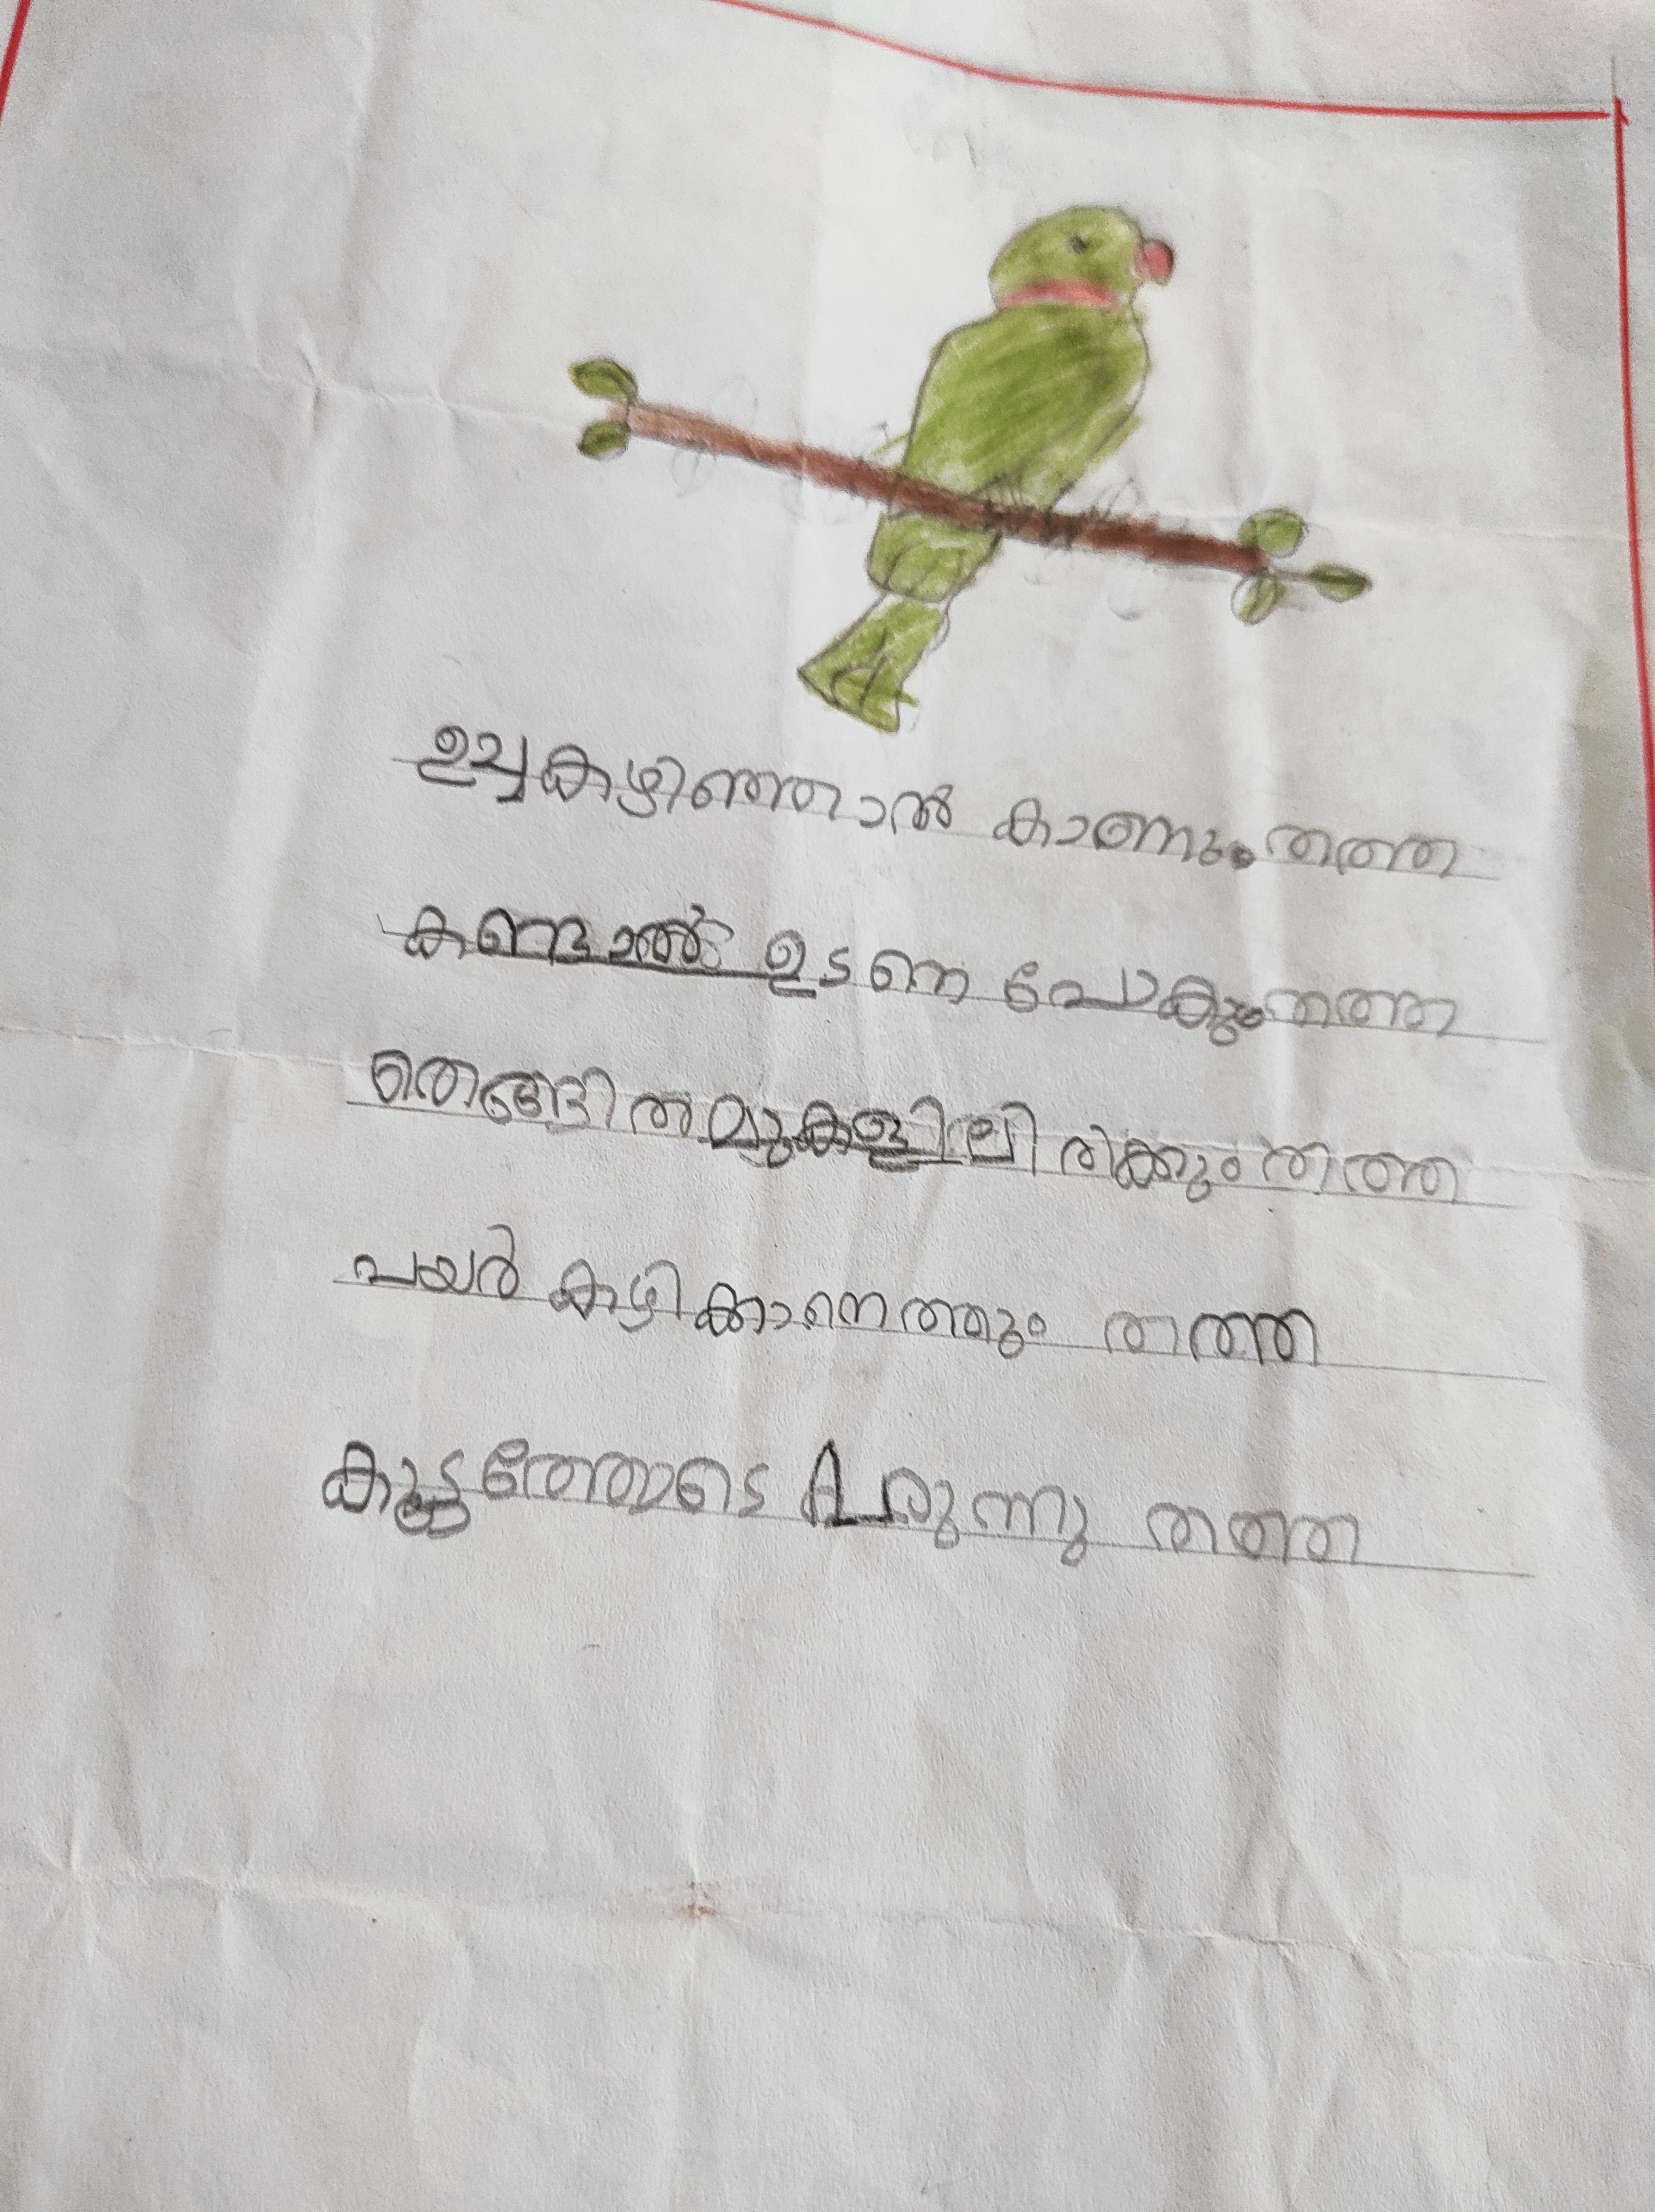 ഉച്ചകഴിഞ്ഞാൽ കാണും തത്ത
കണ്ടൊൽ ഉടനെ പോകും തത്ത
തെങ്ങിൽ മുകളിലിരിക്കും തത്ത
പയർ കഴിക്കാനെത്തും തത്ത
കൂട്ടത്തോടെ വരുന്നു തത്ത